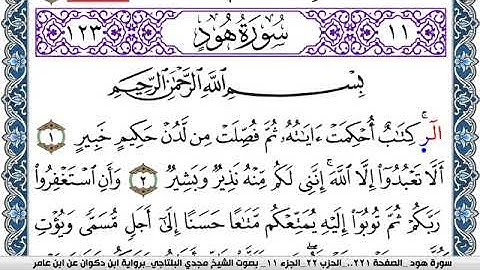 ١١ سُورَةُ هُودٍ ١٢٣
بِسْمِ اللَّهِ الرَّحْمَٰنِ الرَّحِيمِ
الٓر ۚ كِتَابٌ أُحْكِمَتْ ءَايَاتُهُ ثُمَّ فُصِّلَتْ مِن لَّدُنْ حَكِيمٍ خَبِيرٍ ١
أَلَّا تَعْبُدُوا إِلَّا اللَّهَ ۚ إِنَّنِي لَكُم مِّنْهُ نَذِيرٌ وَبَشِيرٌ ٢ وَأَنِ اسْتَغْفِرُوا
رَبَّكُمْ ثُمَّ تُوبُوا إِلَيْهِ يُمَتِّعْكُم مَّتَاعًا حَسَنًا إِلَىٰ أَجَلٍ مُّسَمًّى وَيُؤْتِ
سورة هود _الصفحة ٢٢١.. الحزب ٢٢_الجزء ١١_ بصوت الشيخ مجدي البلتاجي_برواية ابن ذكوان عن ابن عامر